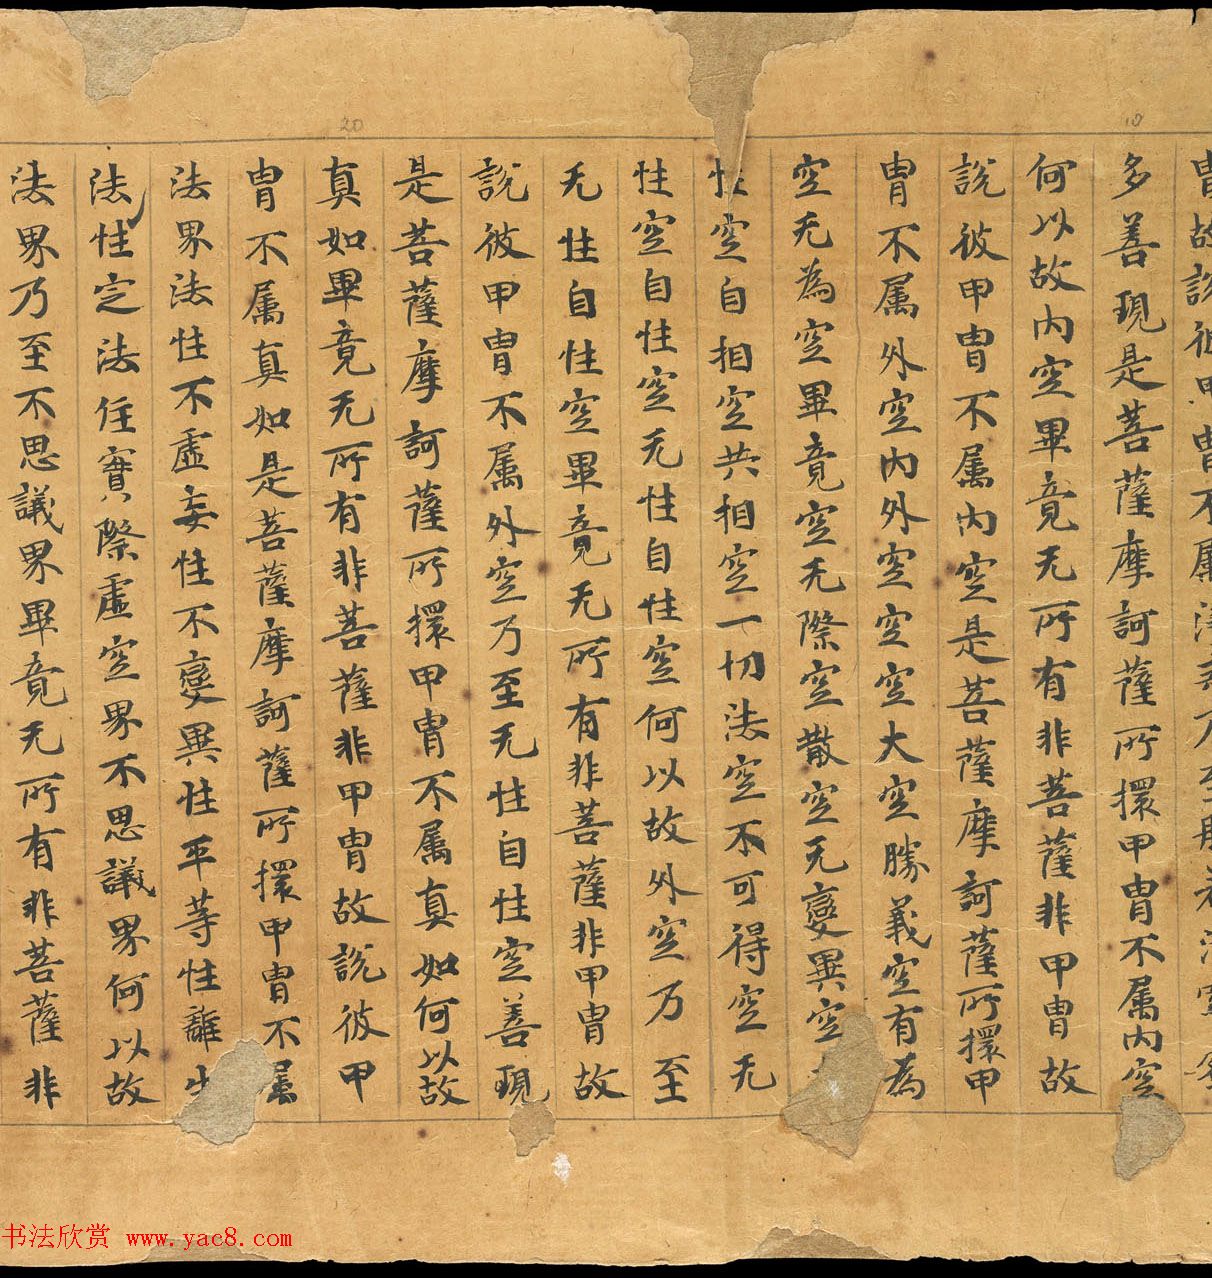 胄故說彼甲胄不属
多善現是菩薩摩訶薩所擐甲胄不属內空
何以故內空畢竟无所有非菩薩非甲胄故
說彼甲胄不属內空是菩薩摩訶薩所擐甲
胄不属外空內外空空空大空勝義空有為
空无為空畢竟空无際空散空无變異空
性空自相空共相空一切法空不可得空无
性空自性空无性自性空何以故外空乃至
无性自性空畢竟无所有非菩薩非甲胄故
說彼甲胄不属外空乃至无性自性空善現
是菩薩摩訶薩所擐甲胄不属真如何以故
真如畢竟无所有非菩薩非甲胄故說彼甲
胄不属真如是菩薩摩訶薩所擐甲胄不属
法界法性不虛妄性不變異性平等性離生
法性定法住實際虛空界不思議界何以故
法界乃至不思議界畢竟无所有非菩薩非
10
20
书法欣赏 www.yac8.com